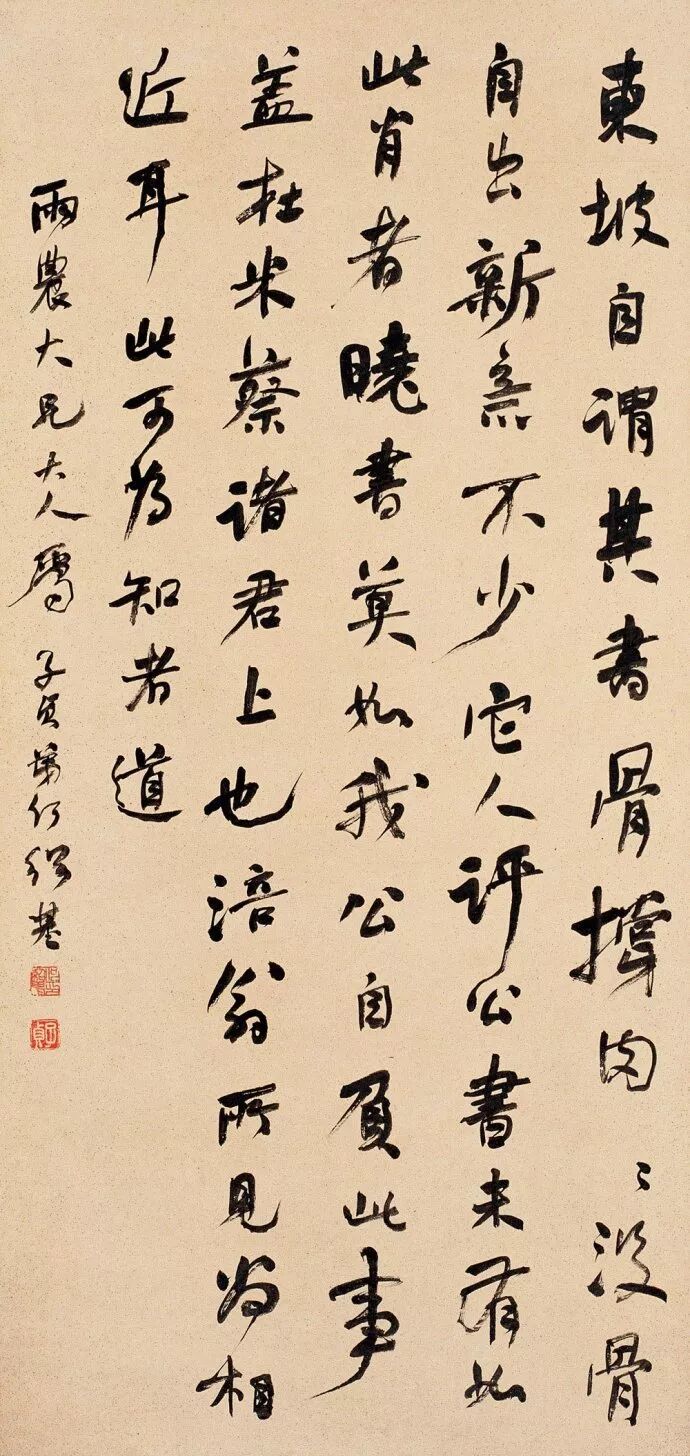 東坡自謂其書骨撐肉〻没骨
自出新意不少它人評公書未有如
此肖者曉書莫如我公自負此事
盖在米蔡諸君上也涪翁所見尚相
近耳此可為知者道
雨農大兄大人屬 子貞弟何紹基
子貞